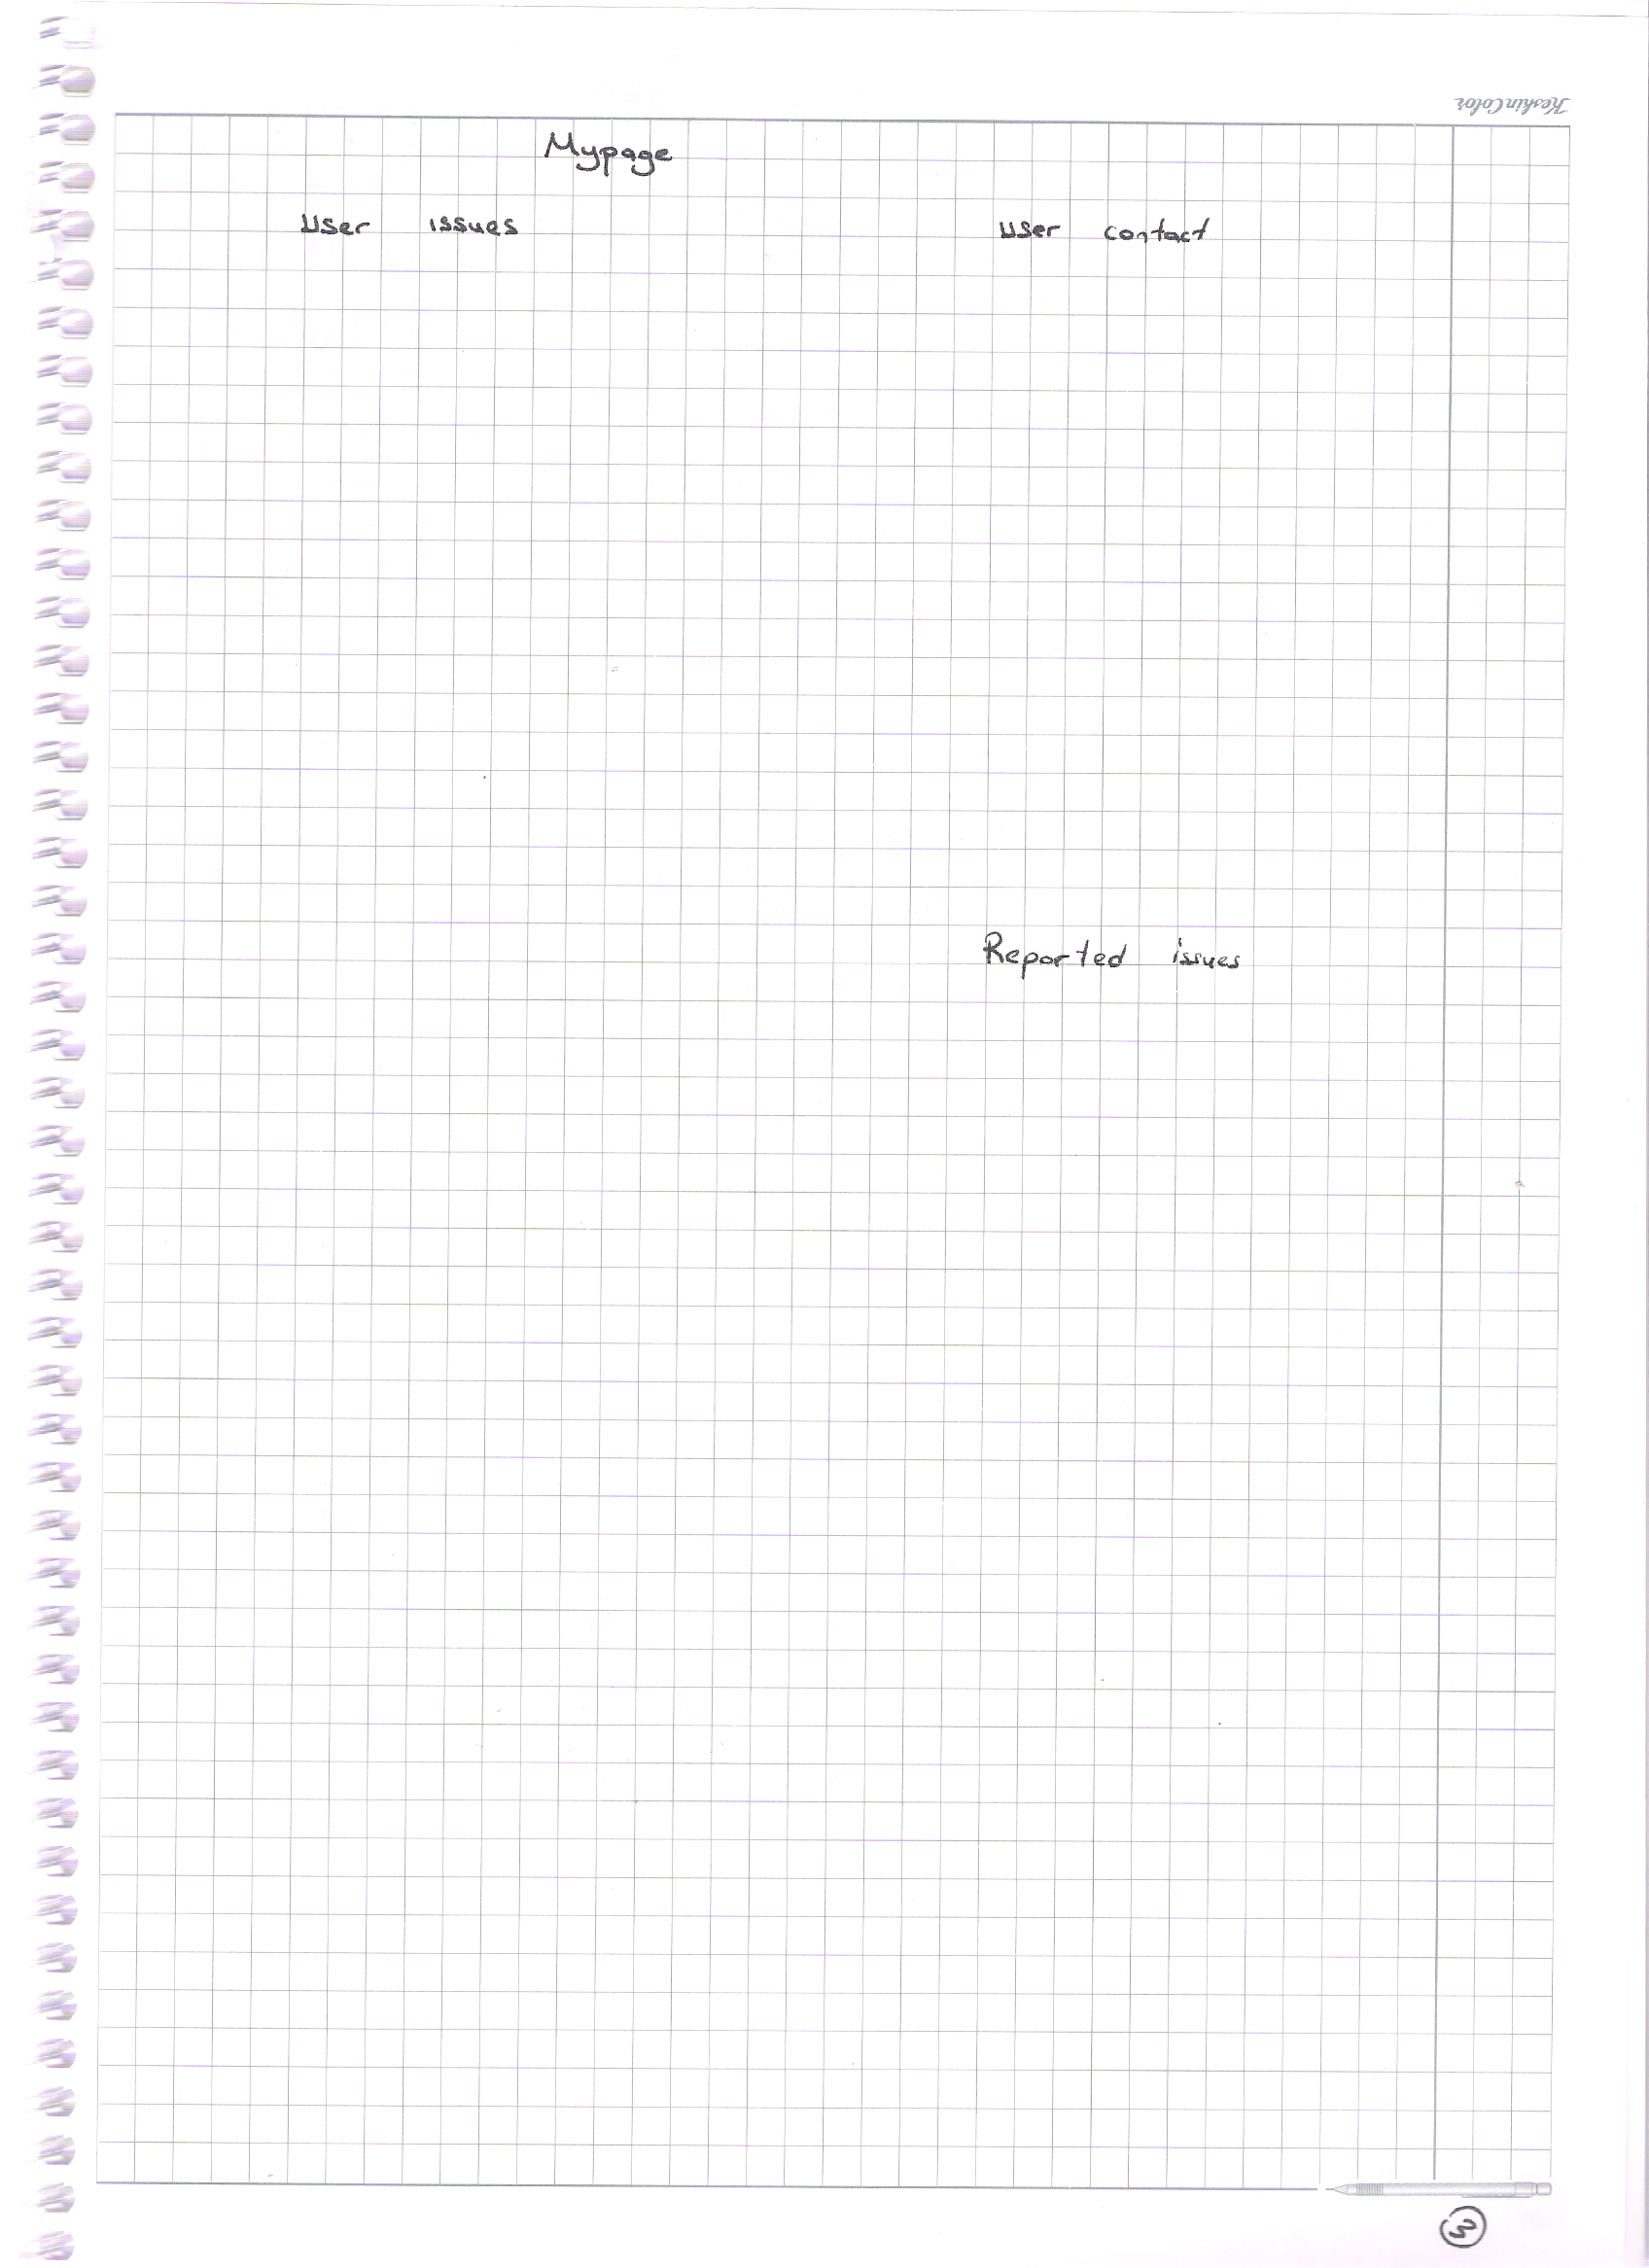 KeskinColor
Mypage
User issues
User contact
Reported issues
3